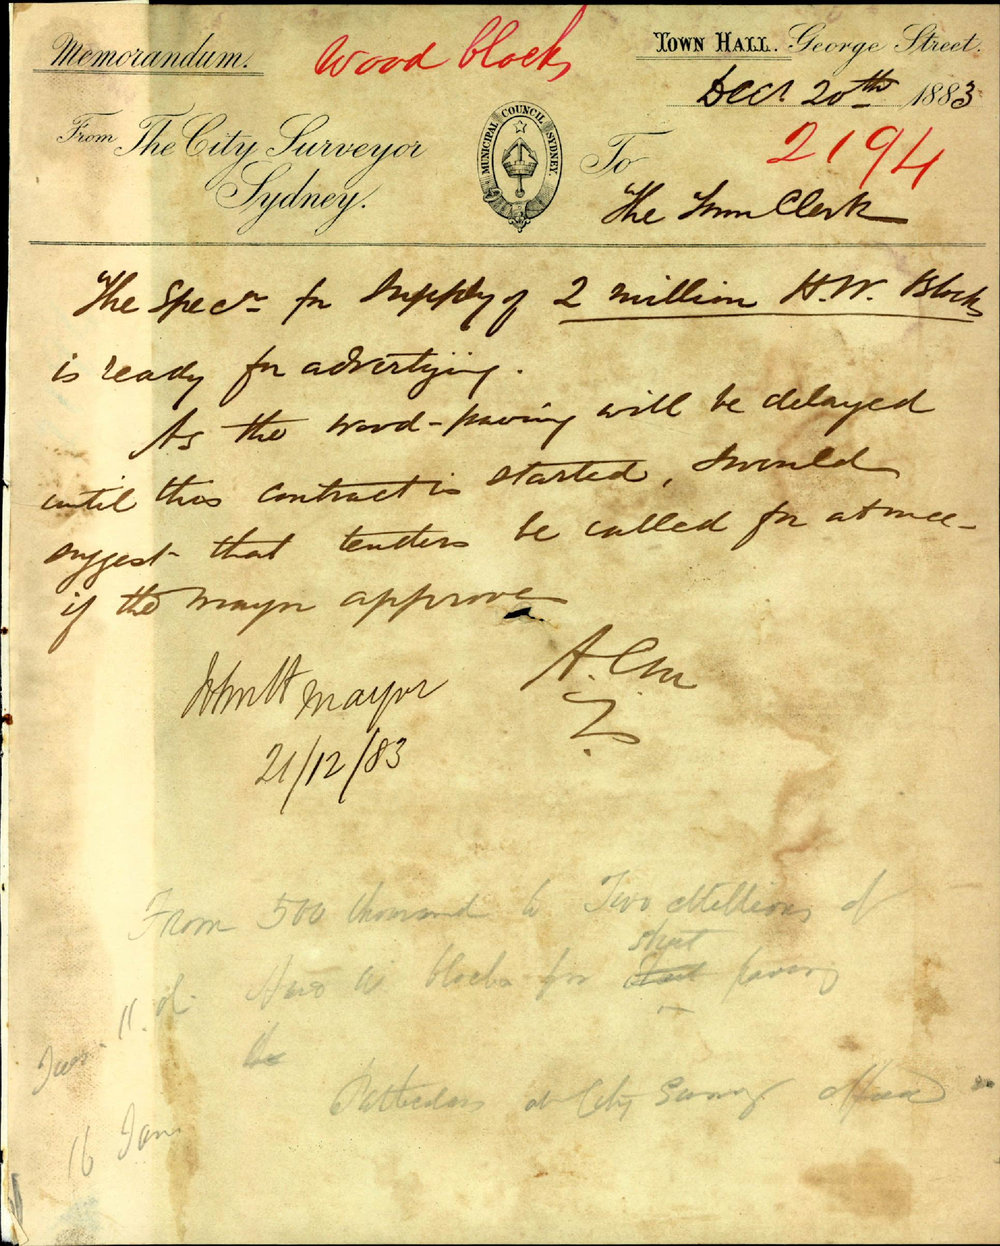 Memorandum.
Wood blocks
TOWN HALL. George Street.
Decr 20th 1883
2194
From The City Surveyor
Sydney.
MUNICIPAL COUNCIL SYDNEY.
To
The Town Clerk
The Specn for Supply of 2 million H.W. Blocks
is ready for advertizing.
As the wood-paving will be delayed
until this contract is started, I would
suggest that tenders be called for at once -
if the Mayor approves
John H Mayor
21/12/83
A. C.
From 500 thousand to Two Millions of
street
blocks for paving
11
the
Particulars at City Survr office
16 Jan